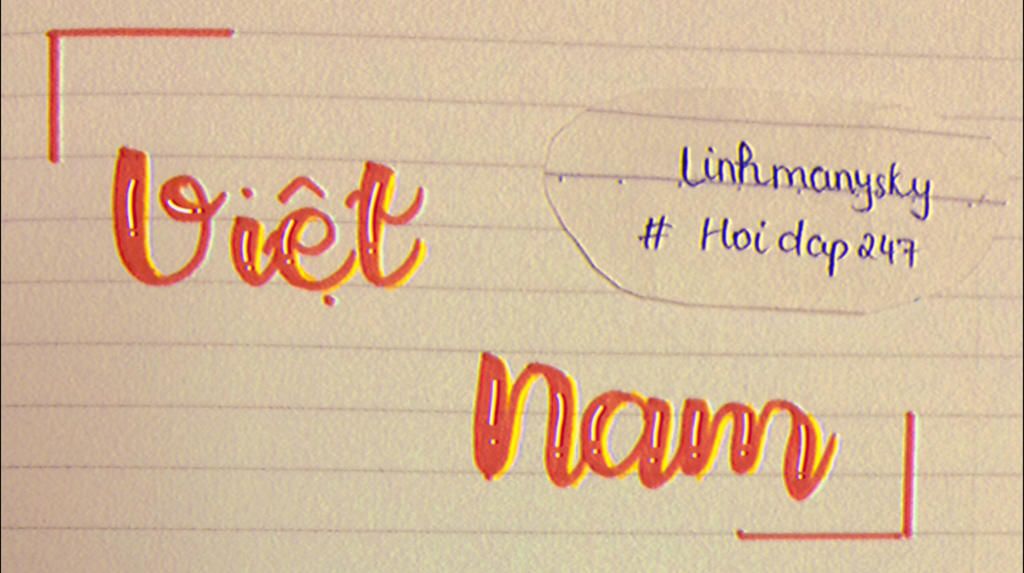 Việt
Linhmanysky
# Hoidap247
Nam